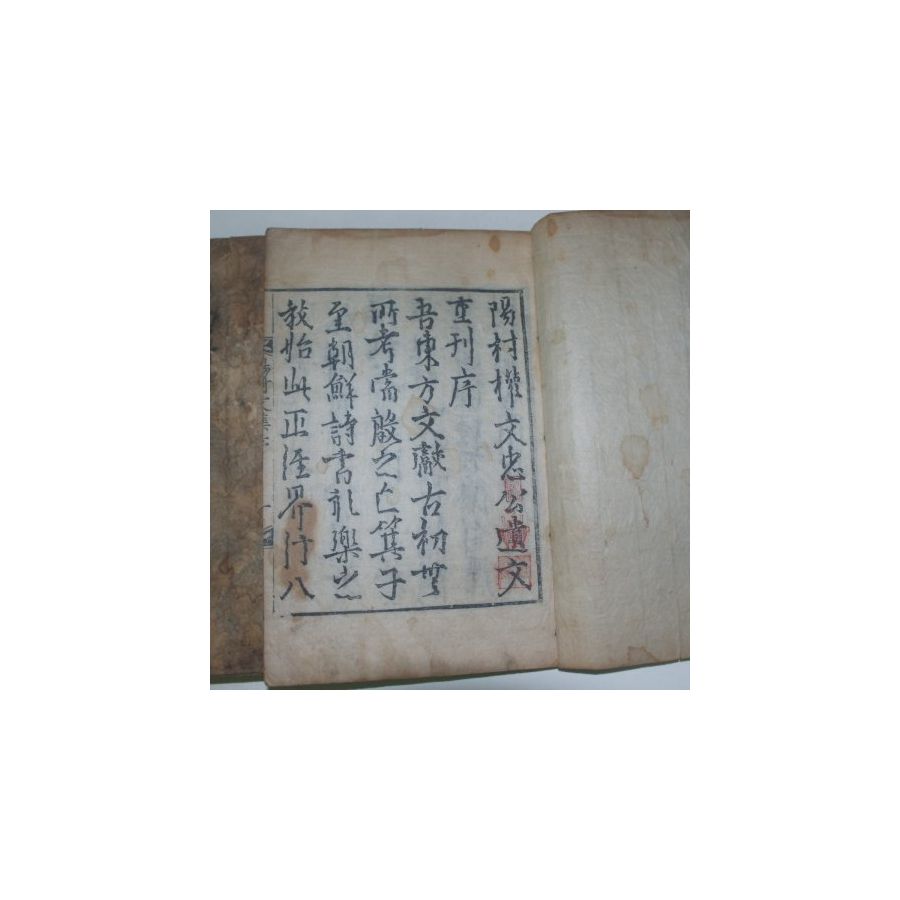 陽村權文忠公遺文
重刊序
吾東方文獻古初無
所考當殷之亡箕子
至朝鮮詩書礼樂之
敎始此正經界行八